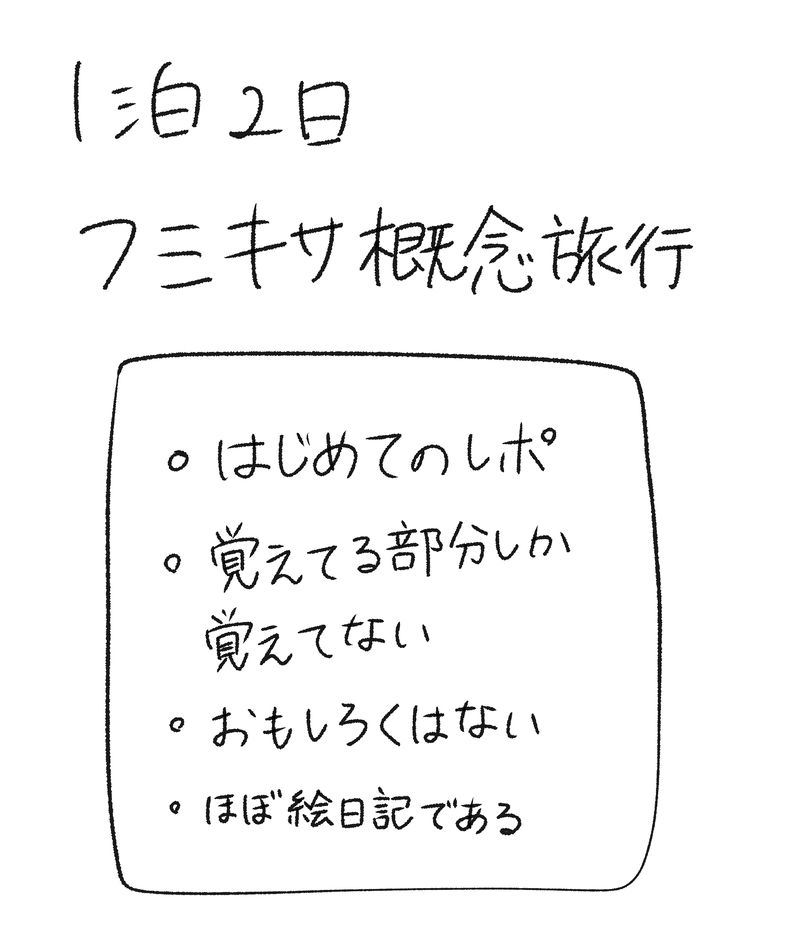 1泊2日
フミキサ概念旅行
○ はじめてのレポ
○ 覚えてる部分しか
覚えてない
○ おもしろくはない
○ ほぼ絵日記である